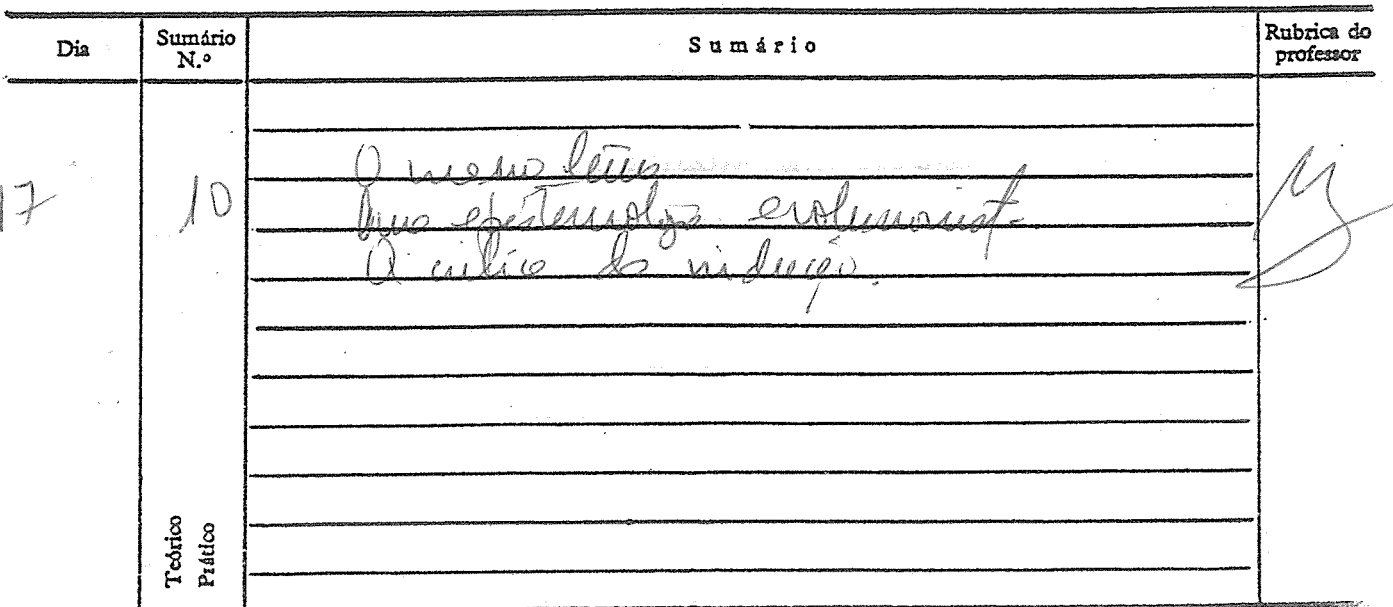 Dia Sumário N.º Sumário Rubrica do professor
17 10 O mesmo tema
Uma epistemologia evolucionist.
A crítica da indução.
Teórico
Prático